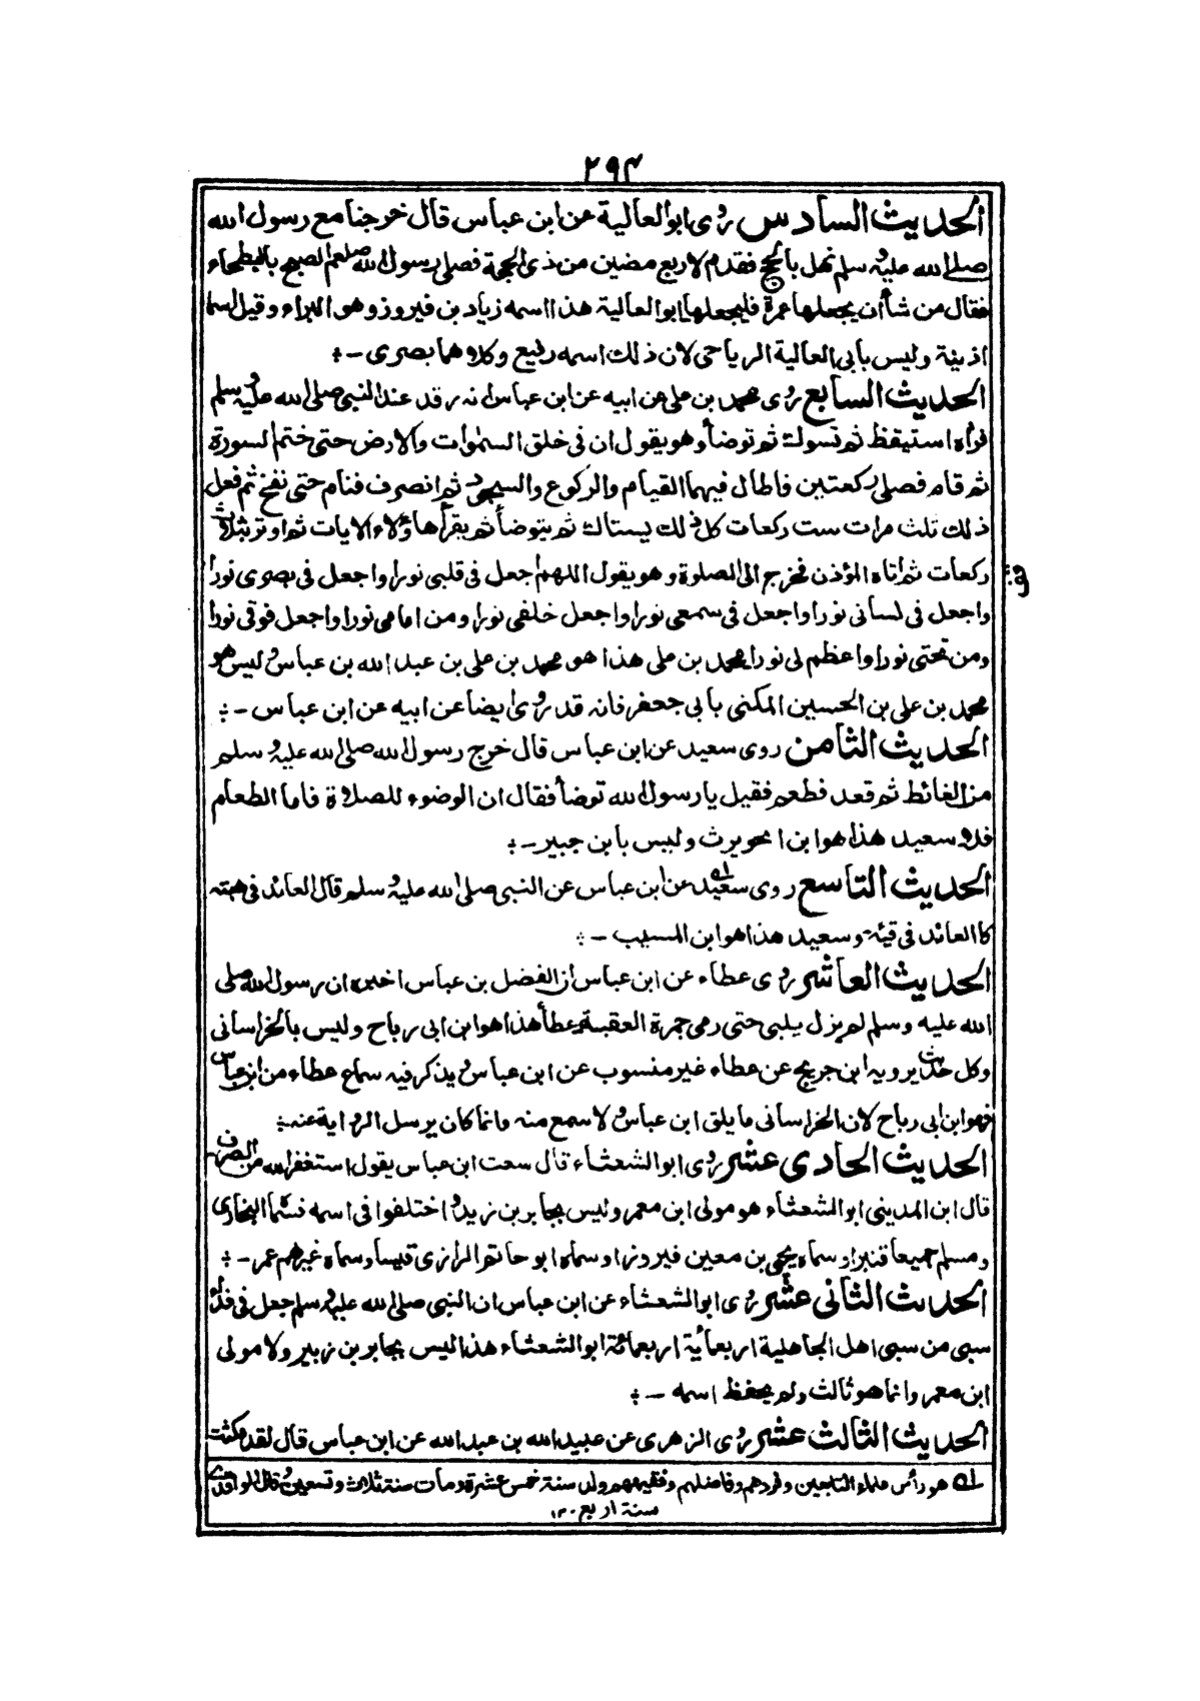 ٢٩٤
الحديث السادس روى ابو العالية عن ابن عباس قال خرجنا مع رسول الله
صلى الله عليه وسلم نهل بالحج فقدم لاربع مضين من ذى الحجة فصلى رسول الله صلعم الصبح بالبطحاء
فقال من شأ ان يجعلها عمرة فليجعلها ابو العالية هذا اسمه زياد بن فيروز وهو البراء وقيل اسمه
اذينة وليس بابى العالية الرياحى لان ذلك اسمه رفيع وكلاهما بصرى -:
الحديث السابع روى محمد بن على عن ابيه عن ابن عباس انه رقد عند النبى صلى الله عليه وسلم
فرأه استيقظ ثم تسوك ثم توضأ وهو يقول ان فى خلق السموات والارض حتى ختم السورة
ثم قام فصلى ركعتين فاطال فيهما القيام والركوع والسجود ثم انصرف فنام حتى نفخ ثم فعل
ذلك ثلث مرات ست ركعات كل ذلك يستاك ثم يتوضأ ثم يقرأ هؤلاء الايات ثم اوتر بثلاث
ركعات ثم اتاه المؤذن فخرج الى الصلوة وهو يقول اللهم اجعل فى قلبى نورا واجعل فى بصرى نورا
واجعل فى لسانى نورا واجعل فى سمعى نورا واجعل خلفى نورا ومن امامى نورا واجعل فوقى نورا
ومن تحتى نورا واعظم لى نورا محمد بن على هذا هو محمد بن على بن عبد الله بن عباس وليس هو
محمد بن على بن الحسين المكنى بابى جعفر فانه قد روى ايضا عن ابيه عن ابن عباس -:
الحديث الثامن روى سعيد عن ابن عباس قال خرج رسول الله صلى الله عليه وسلم
من الغائط ثم قعد فطعم فقيل يا رسول الله توضأ فقال ان الوضوء للصلاة فاما الطعام
فلا وسعيد هذا هو ابن الحويرث وليس بابن جبير -:
الحديث التاسع روى سعيد عن ابن عباس عن النبى صلى الله عليه وسلم قال العائد فى هبته
كالعائد فى قيئه وسعيد هذا هو ابن المسيب -:
الحديث العاشر روى عطاء عن ابن عباس ان الفضل بن عباس اخبره ان رسول الله صلى
الله عليه وسلم لم يزل يلبى حتى رمى جمرة العقبة وعطأ هذا هو ابن ابى رباح وليس بالخراسانى
وكل حديث يرويه ابن جريج عن عطاء غير منسوب عن ابن عباس ويذكر فيه سماع عطاء من ابن عباس
فهو ابن ابى رباح لان الخراسانى ما يلق ابن عباس ولا سمع منه وانما كان يرسل الرواية عنه -:
الحديث الحادى عشر روى ابو الشعثاء قال سمعت ابن عباس يقول استغفر الله من الصرف
قال ابن المدينى ابو الشعثاء هو مولى ابن معمر وليس بجابر بن زيد واختلفوا فى اسمه فسماه البخارى
ومسلم جميعا قنبرا وسماه يحيى بن معين فيروزا وسماه ابو حاتم الرازى قيسا وسماه غيرهم عمر -:
الحديث الثانى عشر روى ابو الشعثاء عن ابن عباس ان النبى صلى الله عليه وسلم جعل فى فداء
سبى من سبى اهل الجاهلية اربعمائة اربعمائة ابو الشعثاء هذا ليس بجابر بن زبير ولا مولى
ابن معمر وانما هو ثالث ولم يحفظ اسمه -:
الحديث الثالث عشر روى الزهرى عن عبيد الله بن عبد الله عن ابن عباس قال لقد مكثت
له هو رأس علماء التابعين وفردهم وفاضلهم وفقيههم ولد سنة خمس عشرة ومات سنة ثلاث وتسعين وقال الواقدى
سنة اربع ١٢٠